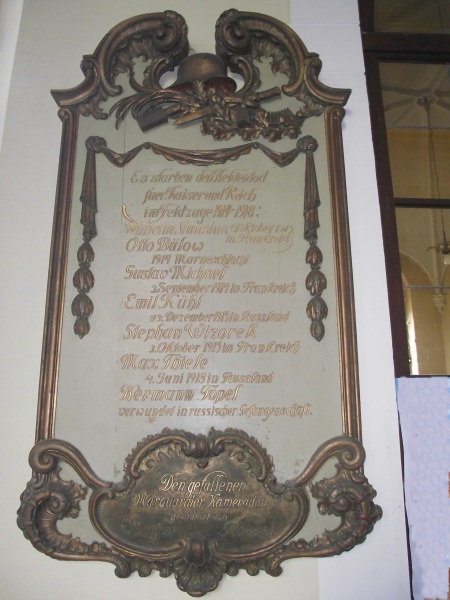 Es starben den Heldentod
für Kaiser und Reich
im Feldzuge 1914-1918:
Oktober
in Frankreich
Otto Bülow
1914 Marneschlacht
Gustav Michael
September 1914 in Frankreich
Emil Kühl
Dezember in Russland
Stephan Wizorek
Oktober 1915 in Frankreich
Max Thiele
4. Juni 1915 in Russland
Hermann Töpel
verwundet in russischer Gefangenschaft.
Den gefallenen
Marquardter Kameraden